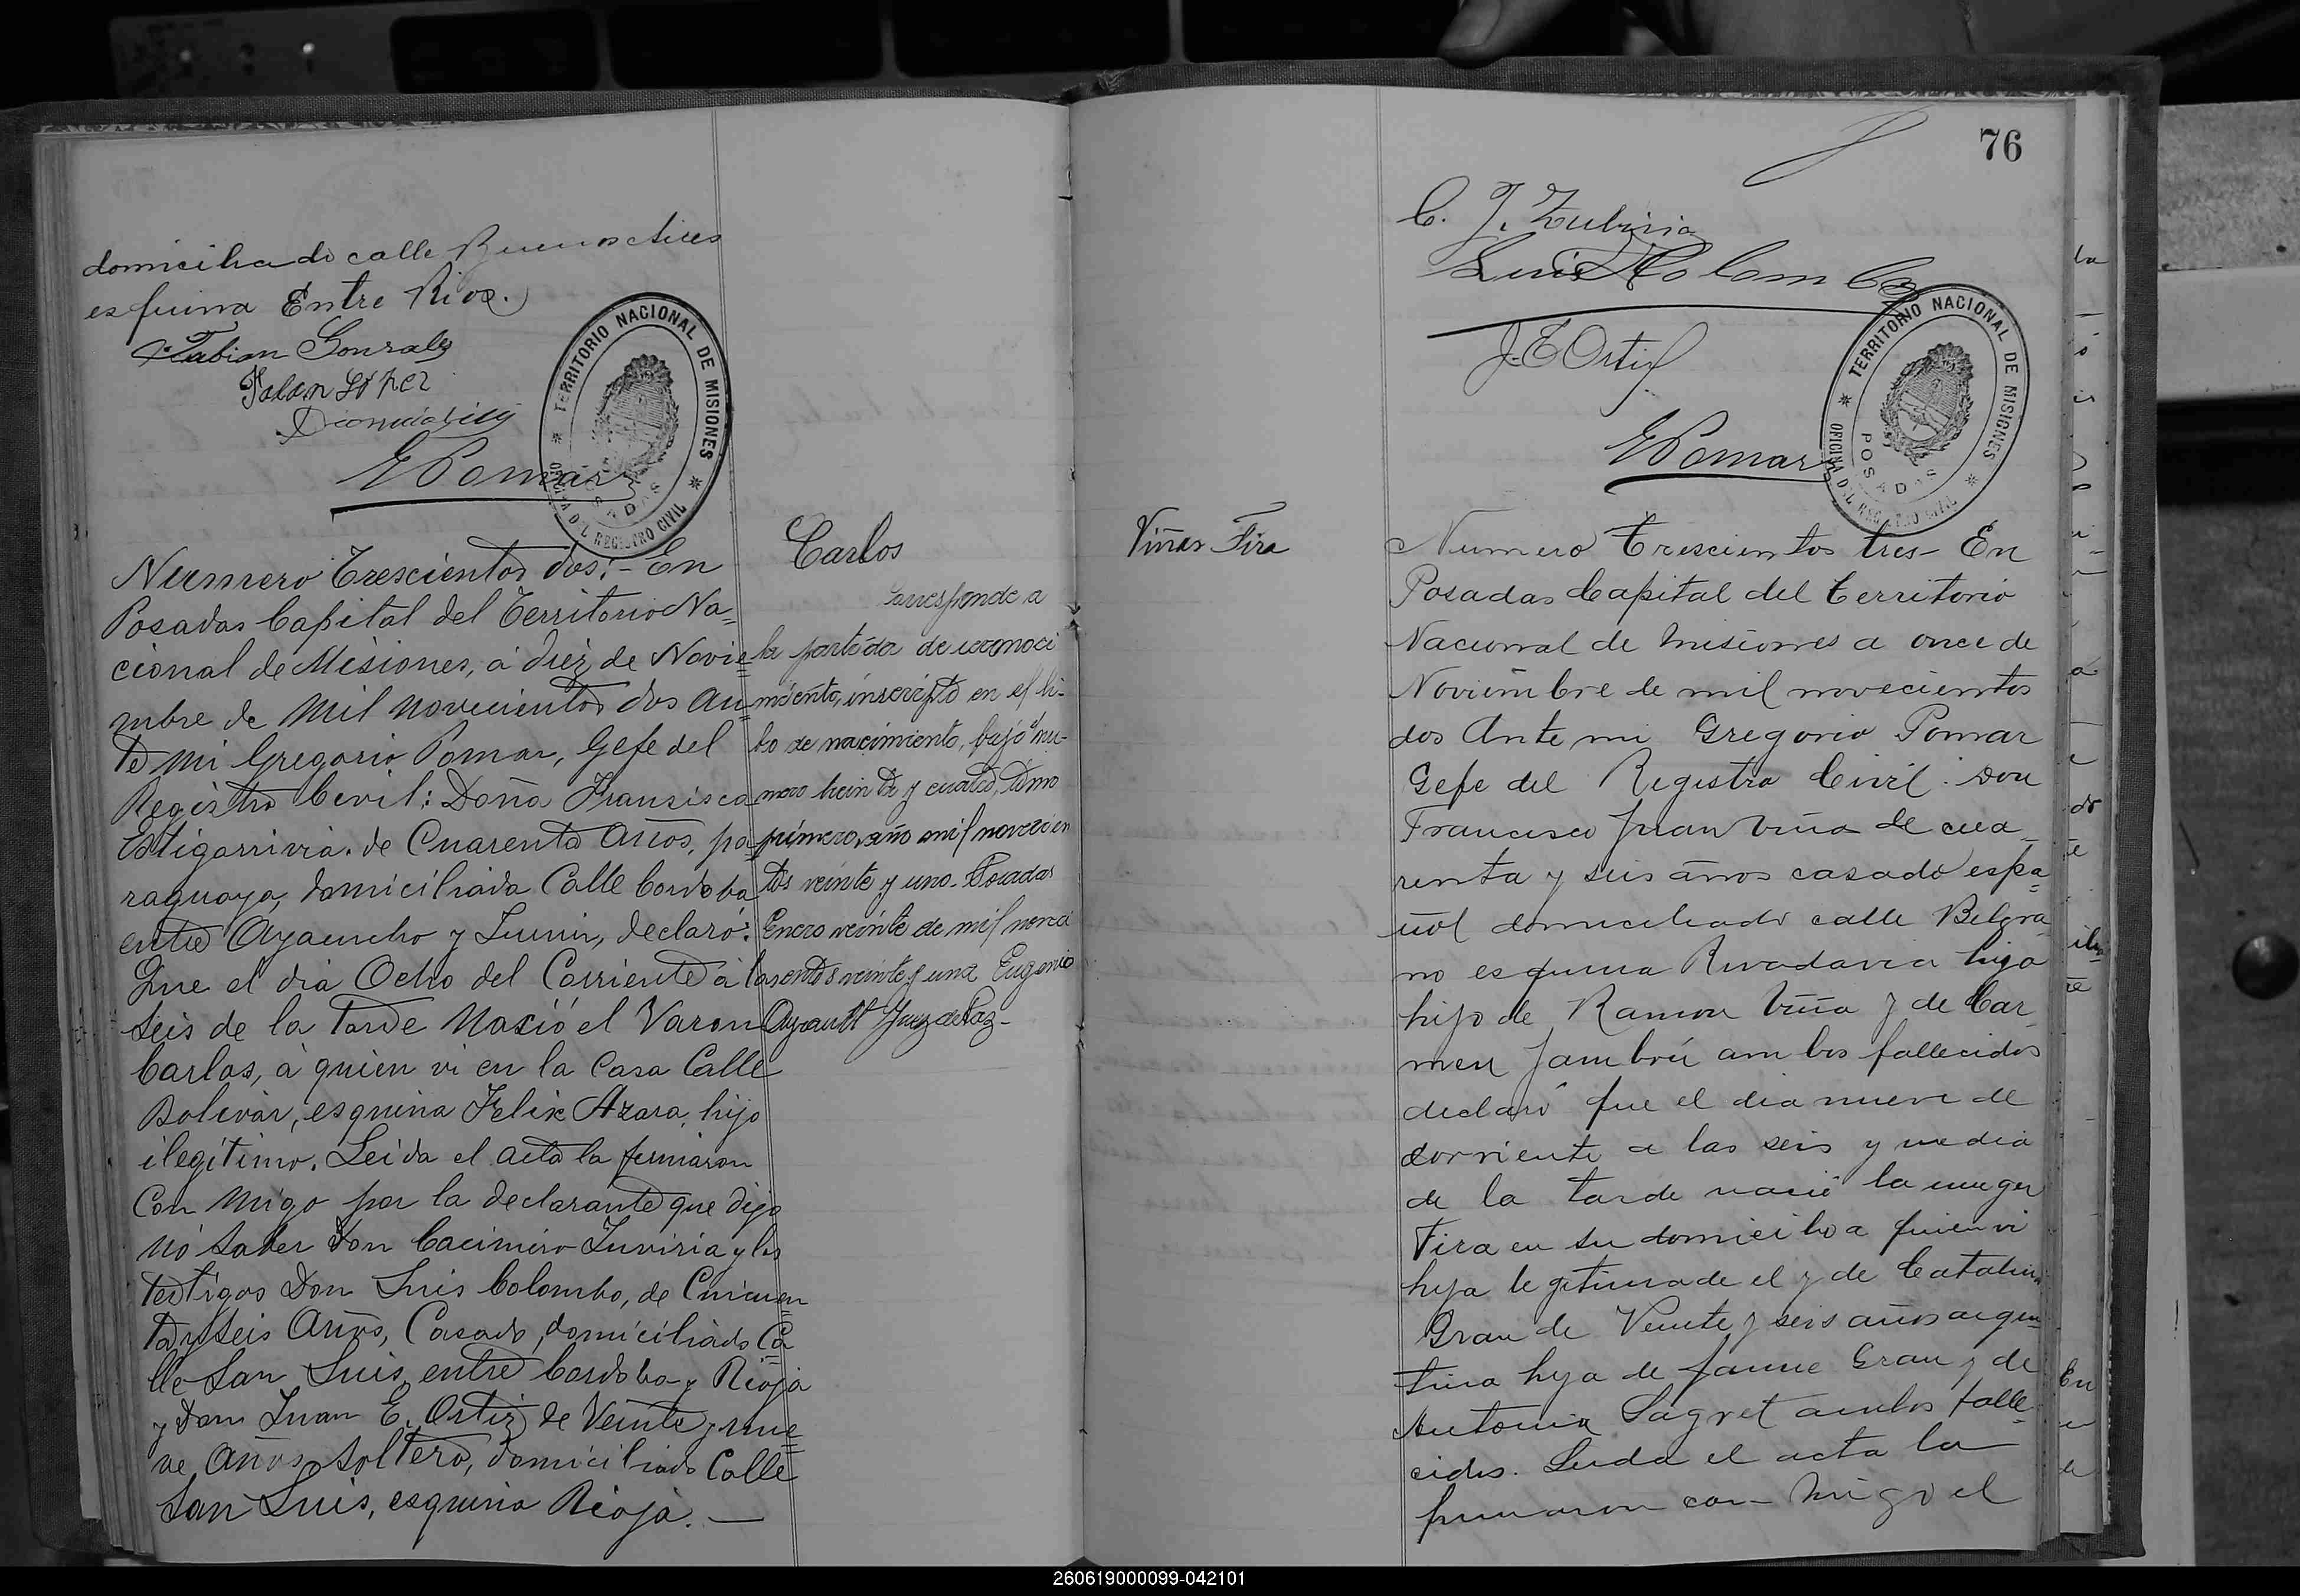 domiciliado calle Buenos Aires
esquina Entre Rios.
Fabian Gonzalez
Lopez
G Pomar
TERRITORIO NACIONAL DE MISIONES
POSADAS
OFICINA DEL REGISTRO CIVIL
Carlos
Numero Trescientos dos:- En
Posadas Capital del Territorio Na=
cional de Misiones, á diez de Novie=
mbre de Mil Novecientos dos An=
te mi Gregorio Pomar, Gefe del
Registro Civil: Doña Fransisca
Estigarrivia. de Cuarenta Años, pa=
raguaya, domiciliada Calle Cordoba
entre Ayacucho y Junin, declaró:
Que el dia Ocho del Corriente á las
seis de la tarde Nació el Varon
Carlos, á quien vi en la Casa Calle
Bolivar, esquina Felix Azara, hijo
ilegitimo. Leida el acta la firmaron
Con migo por la declarante que dijo
nó saber Don Cacimiro Zuviria y los
testigos Don Luis Colombo, de Cincuen=
ta y seis Años, Casado, domiciliado Ca=
lle San Luis, entre Cordoba y Rioja
y Don Juan E. Ortiz de Veinte y nue=
ve Años soltero, domiciliado Calle
San Luis, esquina Rioja. —
Corresponde a
la partida de reconoci
miento, inscripto en el li-
bro de nacimiento, bajo nu-
mero veinte y cuatro, tomo
primero, año mil novecien
tos veinte y uno. Posadas
Enero veinte de mil nove
cientos veinte y uno Eugenio
Ayrault Juez de Paz-
76
C. J. Zubiria
Luis Colombo
J. E Ortiz
G Pomar
TERRITORIO NACIONAL DE MISIONES
POSADAS
OFICINA DEL REGISTRO CIVIL
Viñas Fira
Numero Trescientos tres- En
Posadas Capital del Territorio
Nacional de Misiones a once de
Noviembre de mil novecientos
dos Ante mi Gregorio Pomar
Gefe del Registro Civil: Don
Francisco Juan Viña de cua=
renta y seis años casado espa=
ñol domiciliado calle Belgra=
no esquina Rivadavia hijo
hijo de Ramon Viña y de Car=
men Jambrú ambos fallecidos
declaró que el dia nueve de
corriente a las seis y media
de la tarde nació la muger
Fira en su domicilio a quien vi
hija legitima de el y de Catalina
Grau de Veinte y seis años argen=
tina hija de Jaime Grau y de
Antonia Sagret ambos falle=
cidos. Leida el acta la
firmaron con migo el
260619000099-042101